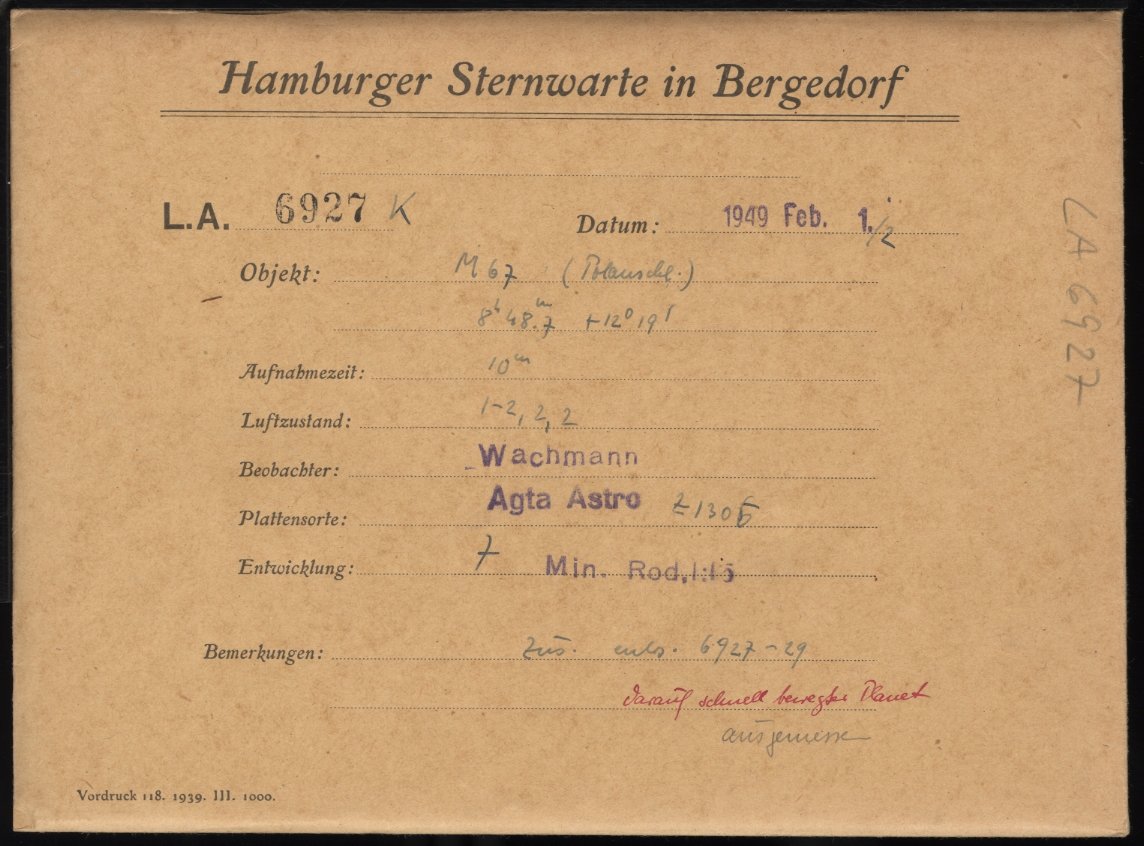 Hamburger Sternwarte in Bergedorf
L.A. 6927 K Datum: 1949 Feb. 1./2
Objekt: M 67
8h 48.m7 +12° 19'
Aufnahmezeit: 10m
Luftzustand: 1-2, 2, 2
Beobachter: Wachmann
Plattensorte: Agfa Astro Z 1305
Entwicklung: 7 Min. Rod. 1:15
Bemerkungen: zus. entw. 6927-29
darauf schnell bewegter Planet
ausgemessen
Vordruck 118. 1939. III. 1000.
LA 6927